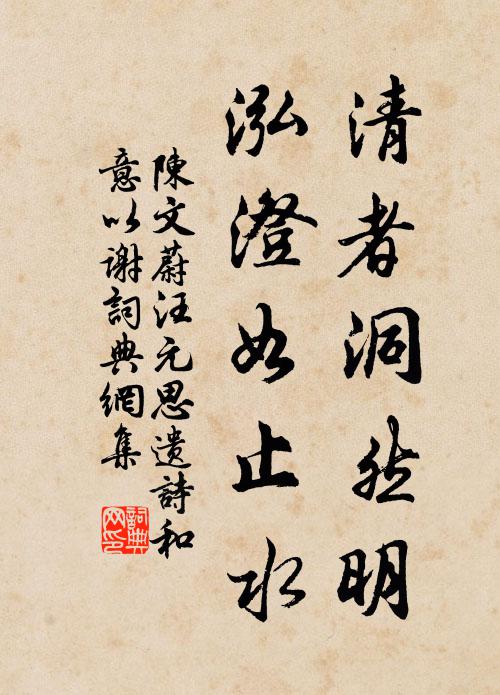 清者洞然明
泓澄如止水
陳文蔚汪元思遺詩和
意以谢詞典網集
詞典
网印